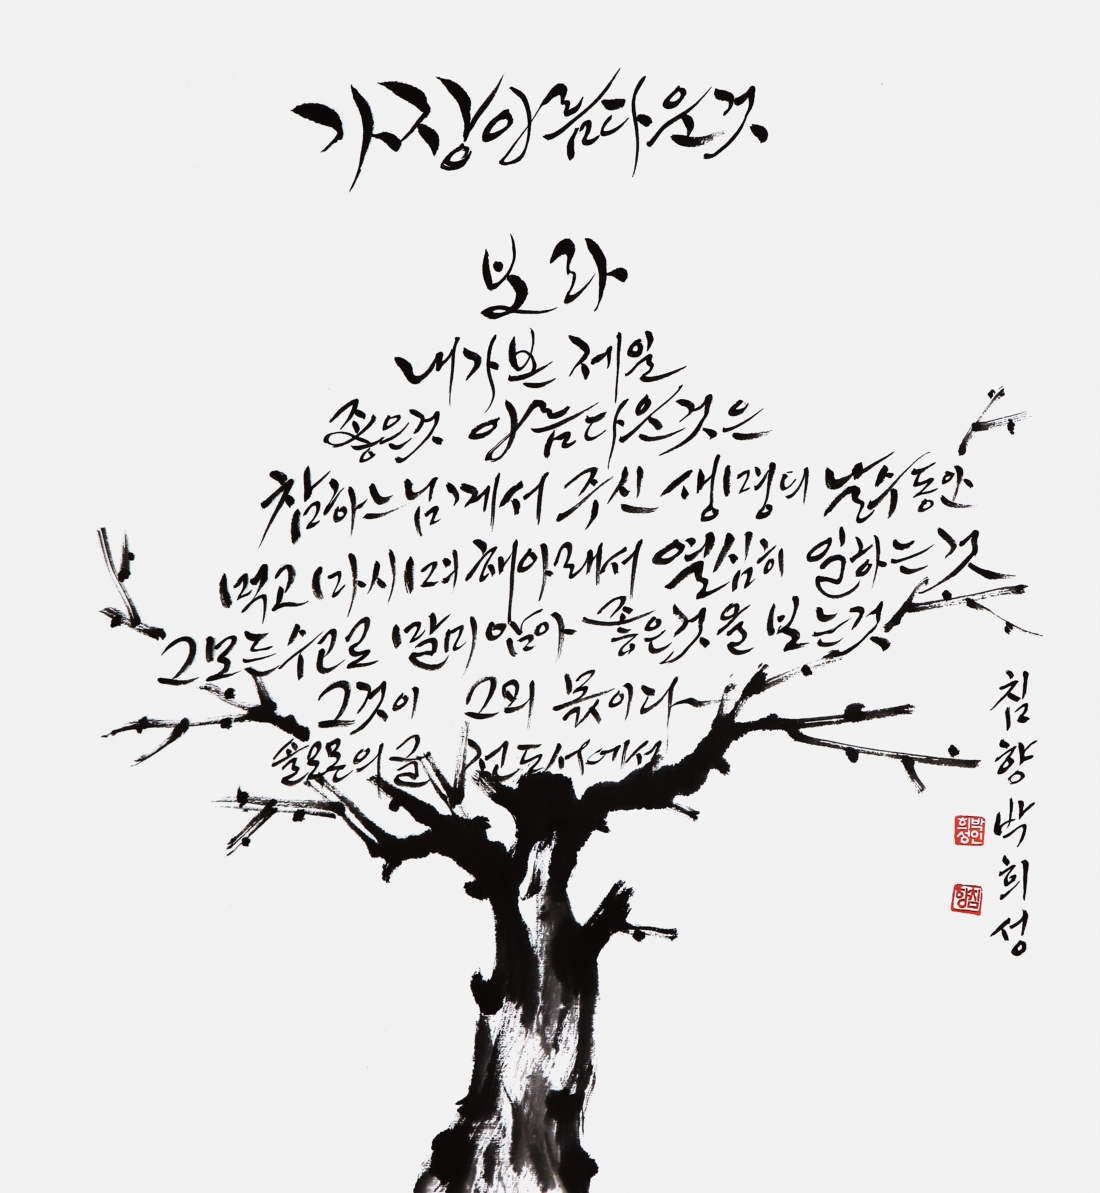 가장아름다운것
보라
내가본 제일
좋은것 아름다운것은
참하느님께서 주신 생명의 날수동안
먹고 마시며 해아래서 열심히 일하는것
그모든수고로 말미암아 좋은것을 보는것
그것이 그의 몫이다
솔로몬의글 전도서에서
침향박희성
박인희성
침향